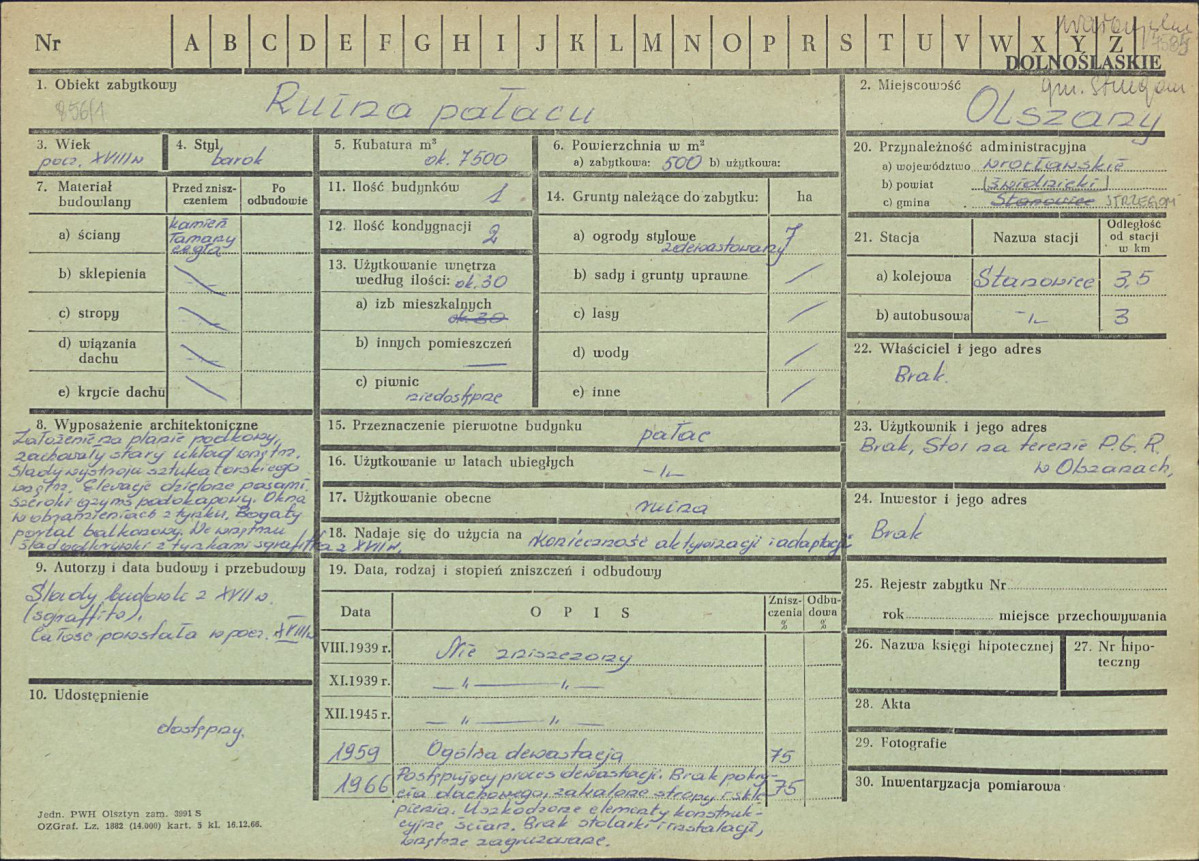 Nr A B C D E F G H I J K L M N O P R S T U V W X Y Z
DOLNOŚLĄSKIE
gm. Strzegom
1. Obiekt zabytkowy
856/1
Ruina pałacu
2. Miejscowość
Olszany
3. Wiek
pocz. XVIII w
4. Styl
barok
5. Kubatura m³
ok. 7500
6. Powierzchnia w m²
a) zabytkowa: 500 b) użytkowa:
20. Przynależność administracyjna
a) województwo wrocławskie
b) powiat świdnicki
c) gmina Stanowice STRZEGOM
7. Materiał budowlany
Przed zniszczeniem
Po odbudowie
a) ściany
kamień
łamany
cegła
b) sklepienia
c) stropy
d) wiązania dachu
e) krycie dachu
11. Ilość budynków
1
12. Ilość kondygnacji 2
13. Użytkowanie wnętrza
według ilości: ok. 30
a) izb mieszkalnych
ok. 30
b) innych pomieszczeń
c) piwnic
niedostępne
14. Grunty należące do zabytku: ha
a) ogrody stylowe 7
zdewastowany
b) sady i grunty uprawne
c) lasy
d) wody
e) inne
21. Stacja
Nazwa stacji
Odległość od stacji w km
a) kolejowa Stanowice 3,5
b) autobusowa -„- 3
22. Właściciel i jego adres
Brak.
8. Wyposażenie architektoniczne
Założenie na planie podkowy,
zachowały stary układ wnętrz.
Ślady wystroju sztukatorskiego
wnętrz. Elewacje dzielone pasami,
szeroki gzyms podokapowy. Okna
w obramieniach z tynku. Bogaty
portal balkonowy. We wnętrzu
ślad odkrywki z tynkami sgraffitta z XVII w.
15. Przeznaczenie pierwotne budynku
pałac
16. Użytkowanie w latach ubiegłych
-„-
17. Użytkowanie obecne
ruina
18. Nadaje się do użycia na konieczność aktywizacji i adaptacji
23. Użytkownik i jego adres
Brak, Stoi na terenie P.G.R.
w Olszanach,
24. Inwestor i jego adres
Brak
9. Autorzy i data budowy i przebudowy
Ślady budowli z XVII w.
(sgraffito).
Całość powstała w pocz. XVIII w
10. Udostępnienie
dostępny.
19. Data, rodzaj i stopień zniszczeń i odbudowy
Data
O P I S
Zniszczenia %
Odbudowa %
VIII.1939 r. Nie zniszczony
XI.1939 r. — „ — „ —
XII.1945 r. — „ — „ —
1959 Ogólna dewastacja 75
1966 Postępujący proces dewastacji. Brak pokry- 75
cia dachowego, zawalone stropy i skle-
pienia. Uszkodzone elementy konstruk-
cyjne ścian. Brak stolarki i instalacji,
wnętrze zagruzowane.
25. Rejestr zabytku Nr
rok miejsce przechowywania
26. Nazwa księgi hipotecznej
27. Nr hipoteczny
28. Akta
29. Fotografie
30. Inwentaryzacja pomiarowa
Jedn. PWH Olsztyn zam. 3991 S
OZGraf. Lz. 1882 (14.000) kart. 5 kl. 16.12.66.